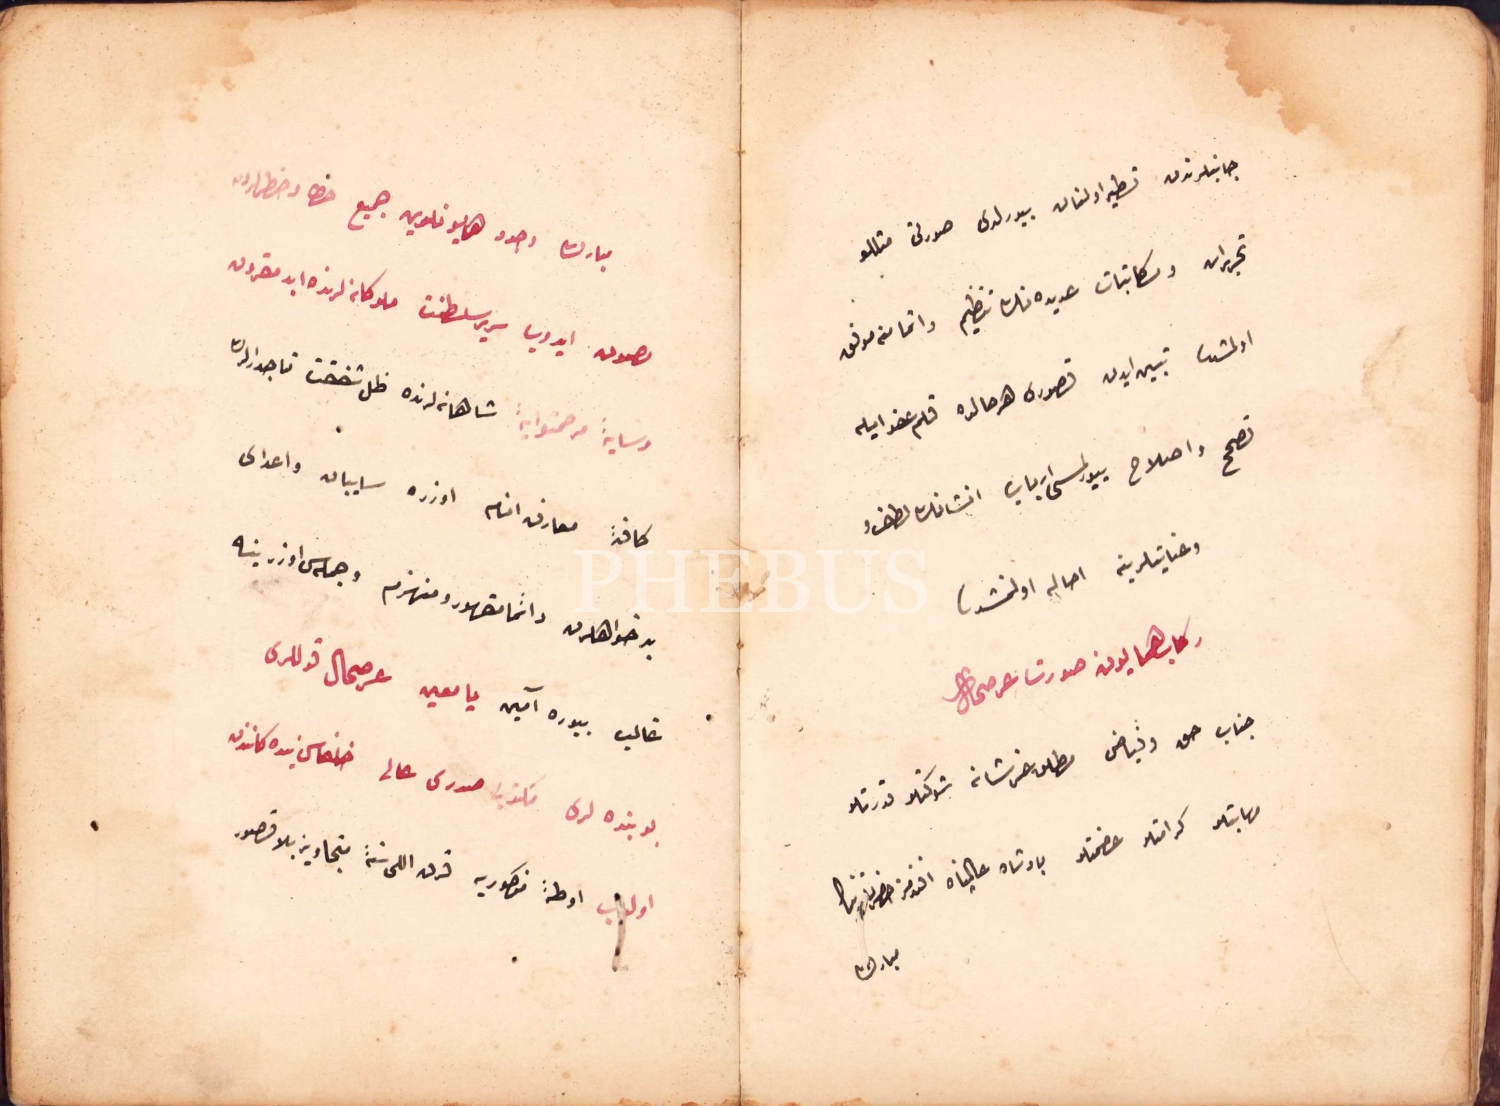 جانبلرندن تسطیر اولنان بیورلدی صورتی مثللو
تحریرات ومکاتبات عدیده نك تنظیم واتمامنه موفق
اولمشدر تبین ایدن قصوری هر حالده قلم عفو ایله
تصحیح واصلاح بیورلمسی ارباب انشانك لطف و
وعنایتلرینه احاله اولنمشدر
رکاب همایون صورت عرضحال
جناب حق وفیاض مطلق عز شانه شوکتلو قدرتلو
مهابتلو کرامتلو عظمتلو پادشاه عالمپناه افندمز حضرتلرینك
مبارك
مبارك وجود همایونلرین جمیع خطا وخطرلردن
مصون ایدوب سریر سلطنت ملوکانه لرنده ابد مقرون
وسایهٔ مرحمتوایهٔ شاهانه لرنده ظل شفقت تاجدارلرك
کافهٔ معارف انام اوزره سایبان واعدای
بدخواهلرن دائما مقهور ومنهزم وجمله سی اوزرینه
غالب بیوره آمین یا معین عرضحال قوللری
بو بنده لری صدری عالی خلفاسی بنده کانندن
اولوب اوطهٔ مزکوریه قرق اللی سنهٔ متجاوز بلا قصور
PHEBUS